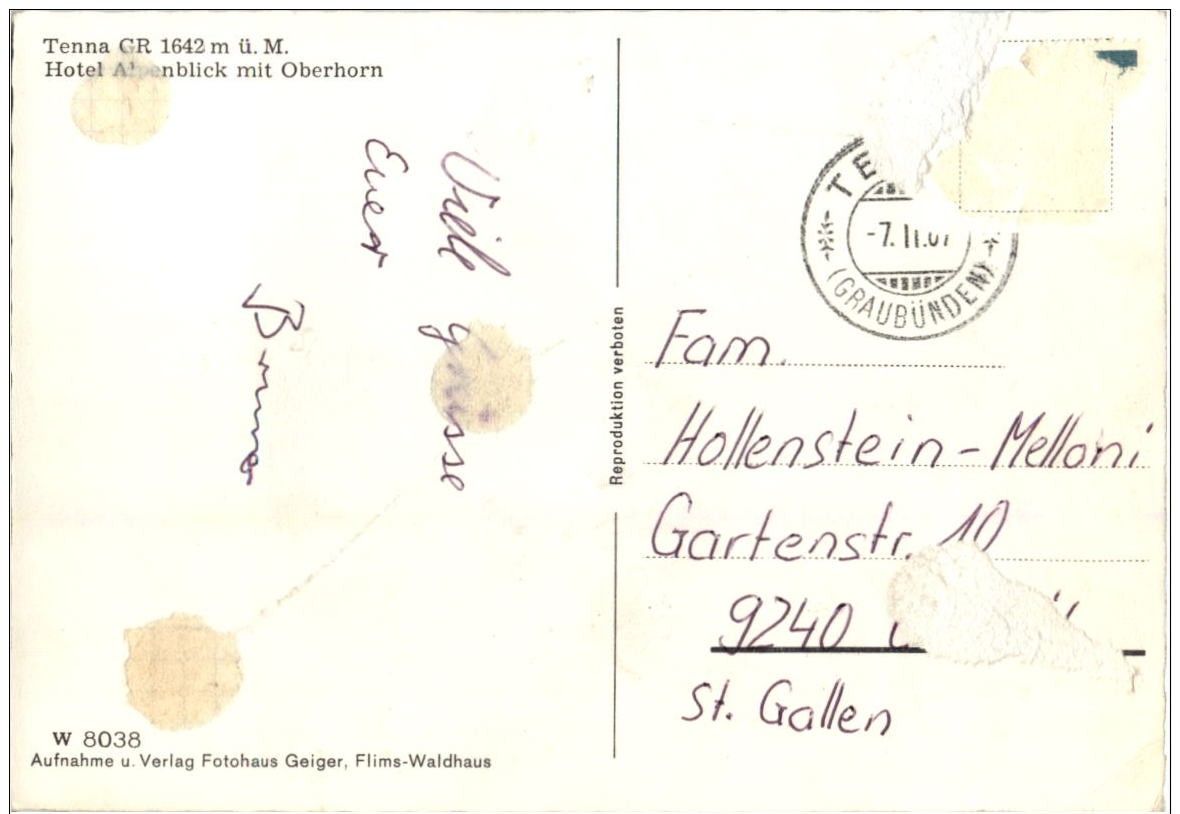 Tenna GR 1642 m ü. M.
Hotel Alpenblick mit Oberhorn
Viele grüsse
Euer
W 8038
Aufnahme u. Verlag Fotohaus Geiger, Flims-Waldhaus
Reproduktion verboten
(GRAUBÜNDEN)
Fam.
Hollenstein-Melloni
Gartenstr. 10
9240
St. Gallen